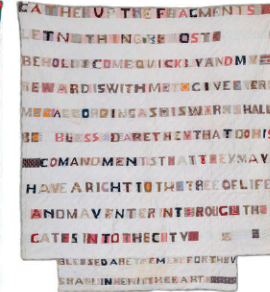 GATHER UP THE FRAGMENTS
LET NOTHING BE LOST
BEHOLD I COME QUICKLY AND MY
REWARD IS WITH ME TO GIVE EVERY
ACCORDING AS HIS WORK SHALL
BE BLESSED ARE THEY THAT DO HIS
COMANDMENTS THAT THEY MAY
HAVE A RIGHT TO THE TREE OF LIFE
AND MA ENTER IN THROUGH THE
GATES INTO THE CITY
BLESSED ARE THE MEEK FOR THEY
SHALL INHERIT THE EARTH